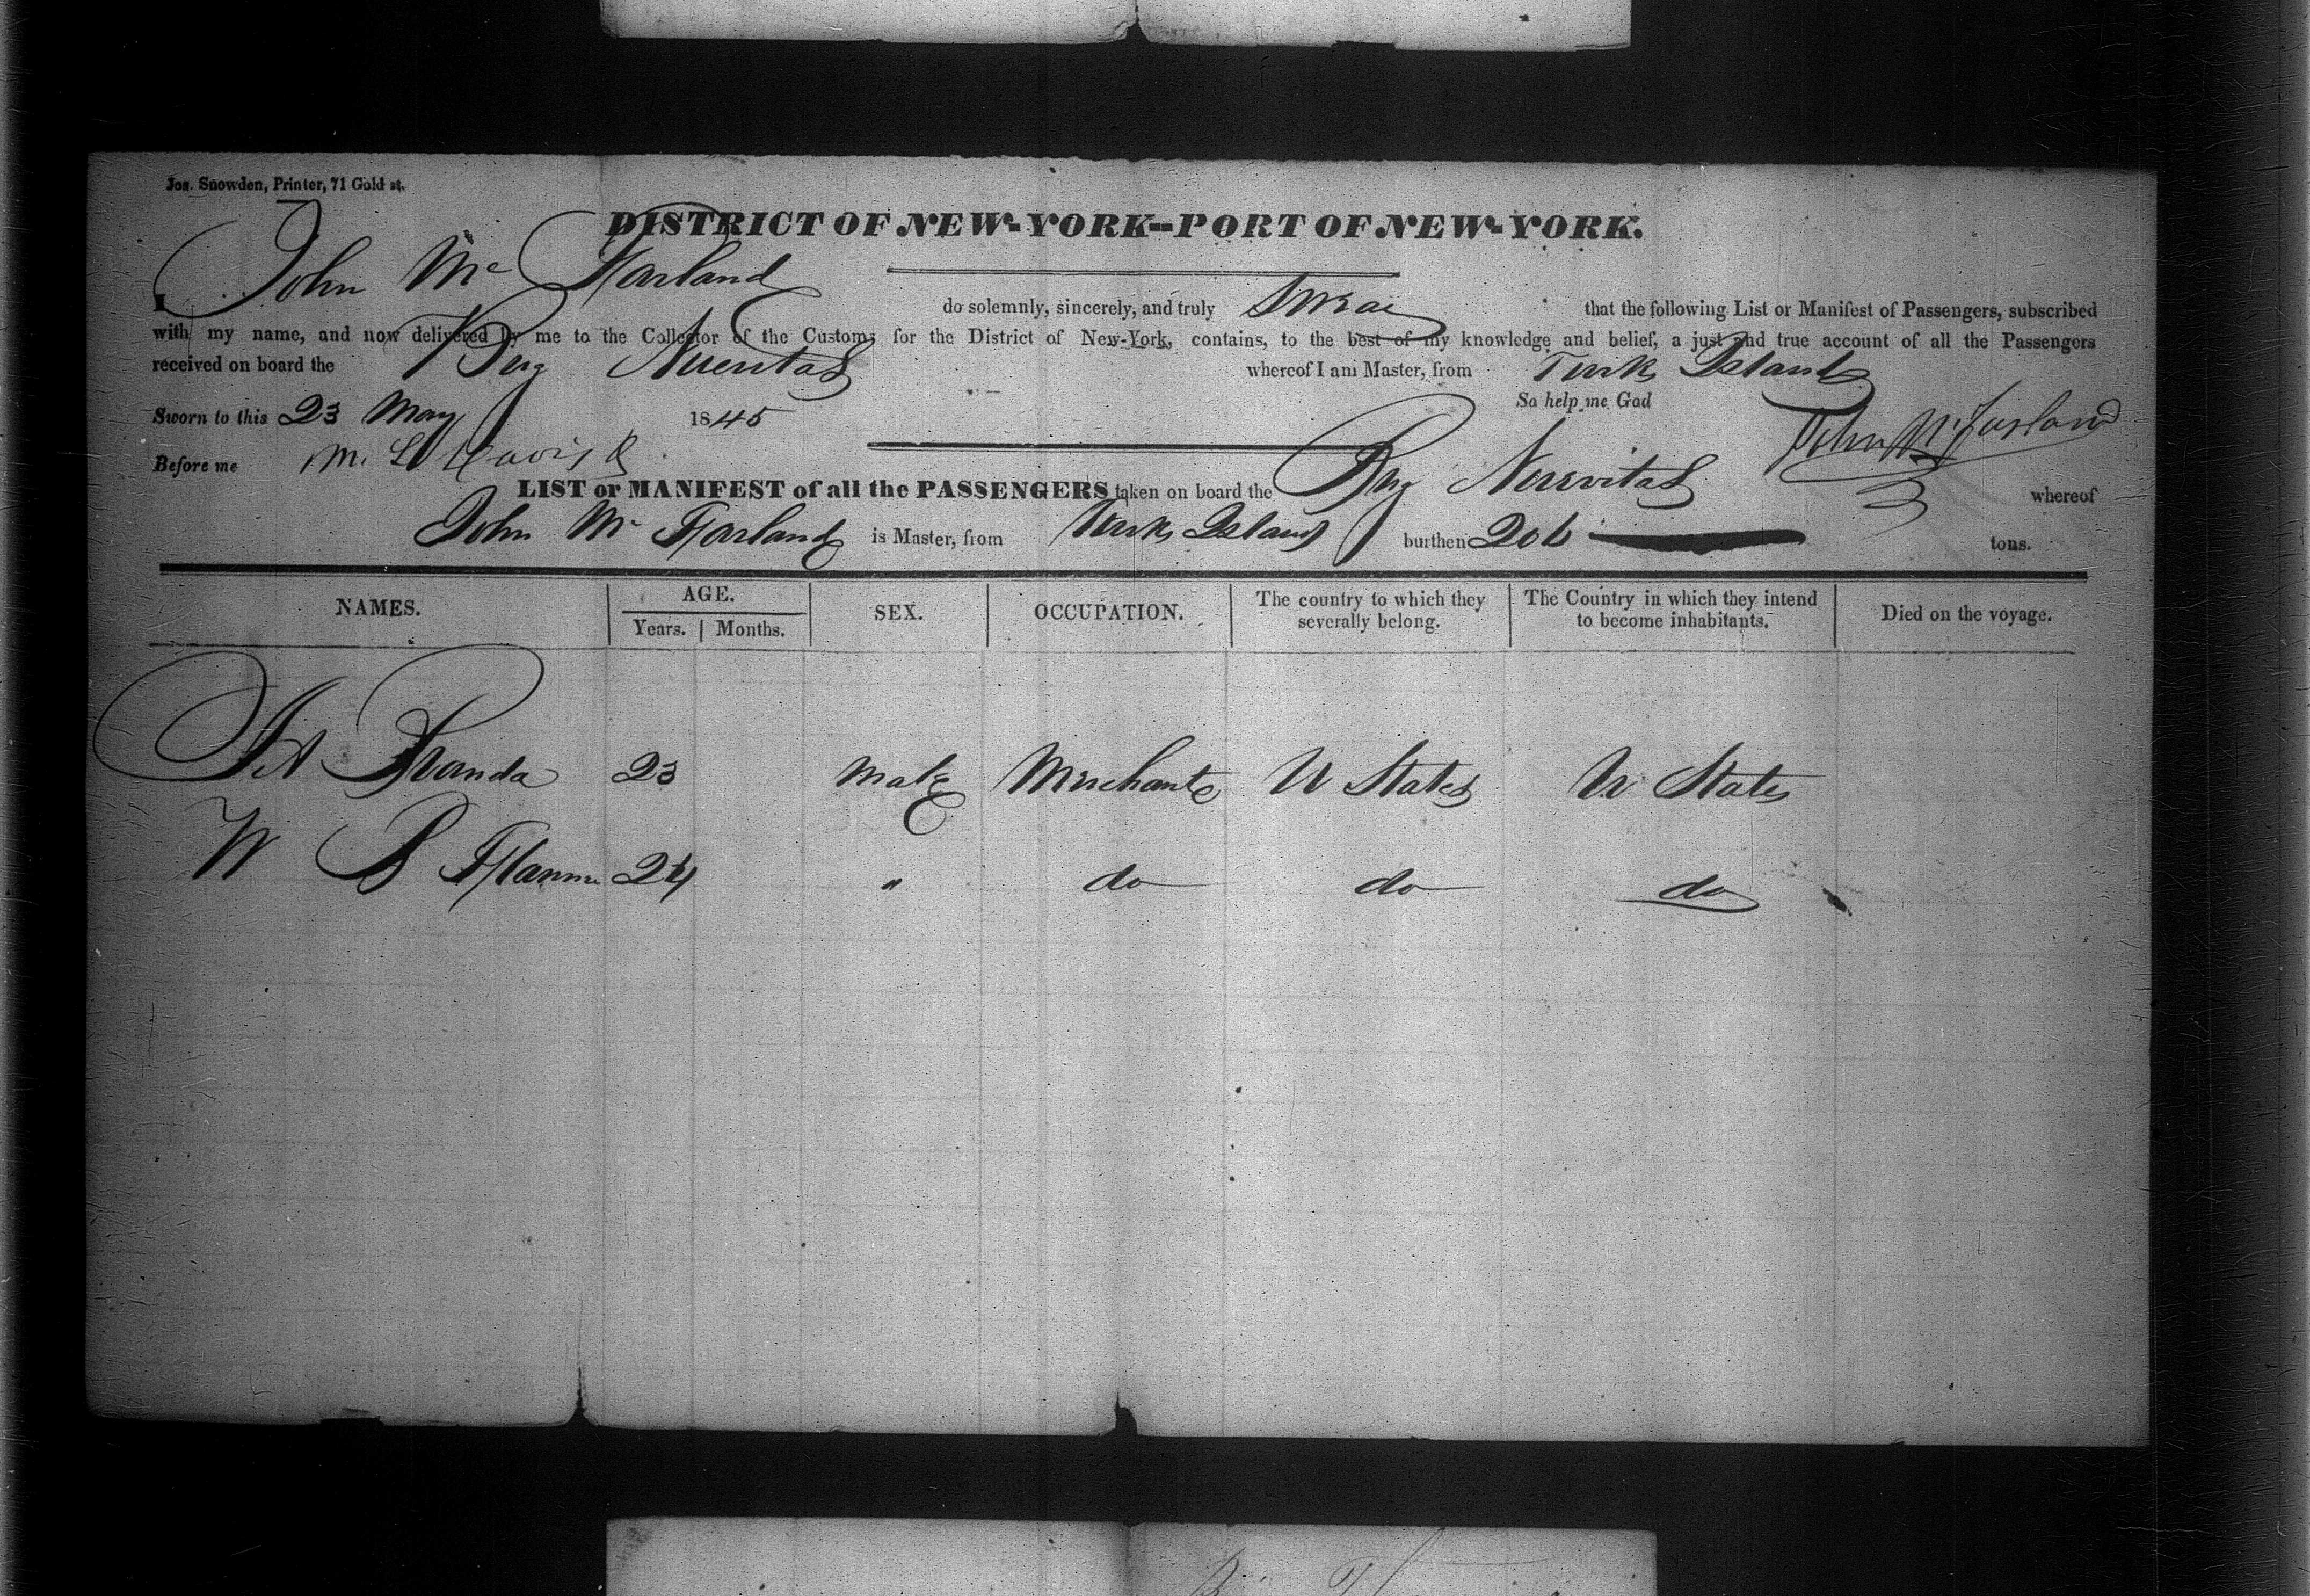 Jos. Snowden, Printer, 71 Gold st.
DISTRICT OF NEW-YORK--PORT OF NEW-YORK.
I John Mc Farland do solemnly, sincerely, and truly that the following List or Manifest of Passengers, subscribed
with my name, and now delivered by me to the Collector of the Customs for the District of New-York, contains, to the best of my knowledge and belief, a just and true account of all the Passengers
received on board the Brig Nuevitas whereof I am Master, from Turks Island
So help me God
Sworn to this 23 May 1845
John McFarland
Before me M. L. Davis
LIST or MANIFEST of all the PASSENGERS taken on board the Brig Neuvitas whereof
John Mc Farland is Master, from Turks Island burthen 206 tons.
NAMES. AGE. SEX. OCCUPATION. The country to which they severally belong. The Country in which they intend to become inhabitants. Died on the voyage.
Years. Months.
23 Male Merchant U States U States
W B 24 " do do do